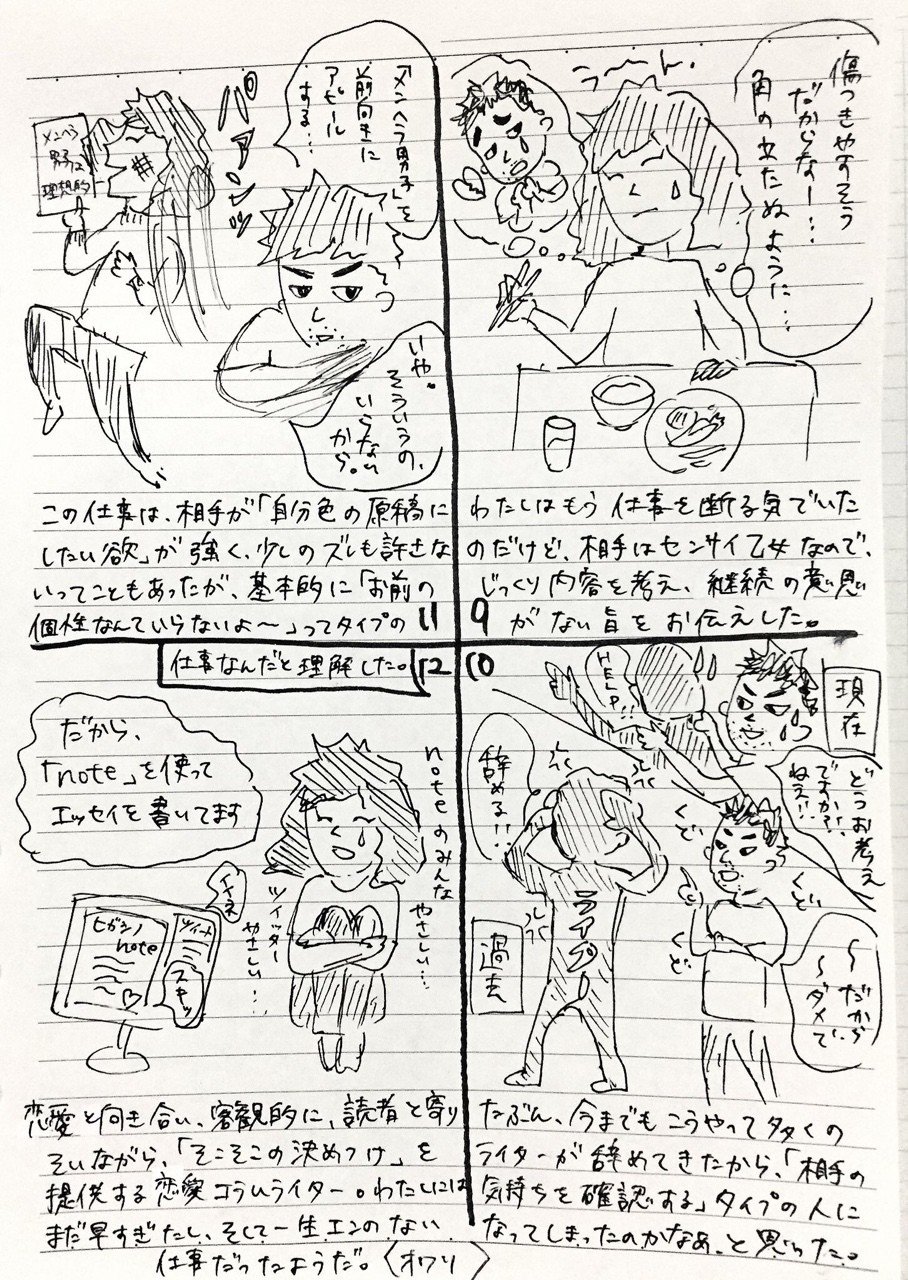 傷つきやすそう
だからなー…
角の立たぬように…
うーん、
わたしはもう仕事を断る気でいた
のだけど、相手はセンサイ乙女なので、
じっくり内容を考え、継続の意思
がない旨をお伝えした。
9
10
現在
HELP!!
どうお考え
ですか?!
ねえ!!
くど
くど
くど
くど
〜だから
〜ダメで、
辞める!!
過去
ライター
たぶん、今までもこうやって多くの
ライターが辞めてきたから、「相手の
気持ちを確認する」タイプの人に
なってしまったのかなぁ、と思った。
「メンヘラ男子」を
前向きに
アピール
する…
パァンッ
メンヘラ
男子は
理想的
いや。
そういうの、
いらない
から。
この仕事は、相手が「自分色の原稿に
したい欲」が強く、少しのズレも許さな
いってこともあったが、基本的に「お前の
個性なんていらないよ〜」ってタイプの
11
仕事なんだと理解した。
12
だから、
「note」を使って
エッセイを書いてます
noteのみんな
やさしい…
ツイッター
やさしい…
イイネ
ヒガシノ
note
ツイート
スキッ
恋愛と向き合い、客観的に、読者と寄り
そいながら、「そこそこの決めつけ」を
提供する恋愛コラムライター。わたしには
まだ早すぎたし、そして一生エンのない
仕事だったようだ。〈オワリ〉